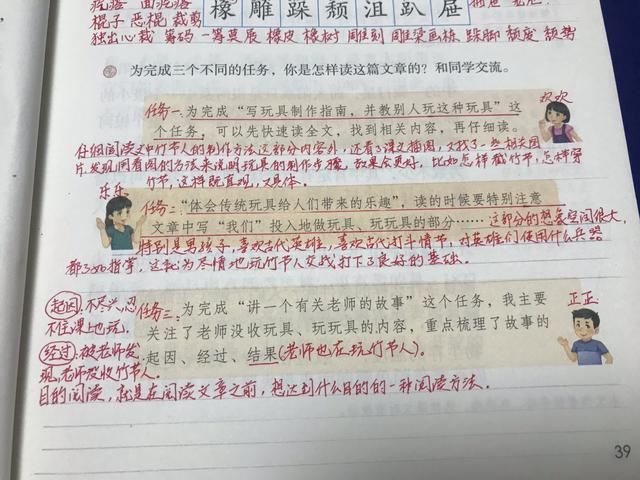 疙瘩 面疙瘩
棍子 恶棍 裁剪
橡 雕 跺 颓 沮 趴 屉
独出心裁 筹码 一筹莫展 橡皮 橡树 雕刻 雕梁画栋 跺脚 颓废 颓势
为完成三个不同的任务，你是怎样读这篇文章的？和同学交流。
欢欢
任务一：为完成“写玩具制作指南，并教别人玩这种玩具”这
个任务，可以先快速读全文，找到相关内容，再仔细读。
仔细阅读文中竹节人的制作方法这部分内容外，还看了课文插图，又找了一些相关图
片。发现用看图的方法来说明玩具的制作步骤，效果会更好，比如怎样截竹节，怎样穿
竹节，这样既直观，又具体。
乐乐
任务二：“体会传统玩具给人们带来的乐趣”，读的时候要特别注意
文章中写“我们”投入地做玩具、玩玩具的部分……这部分的想象空间很大，
特别是男孩子，喜欢古代英雄，喜欢古代打斗情节，对英雄们使用什么兵器
都了如指掌，这就为尽情地玩竹节人交战打下了良好的基础。
正正
起因：不尽兴，忍
不住课上也玩。
任务三：为完成“讲一个有关老师的故事”这个任务，我主要
关注了老师没收玩具、玩玩具的内容，重点梳理了故事的
起因、经过、结果(老师也在玩竹节人)。
经过：被老师发
现，老师没收竹节人。
目的阅读，就是在阅读文章之前，想达到什么目的的一种阅读方法。
39